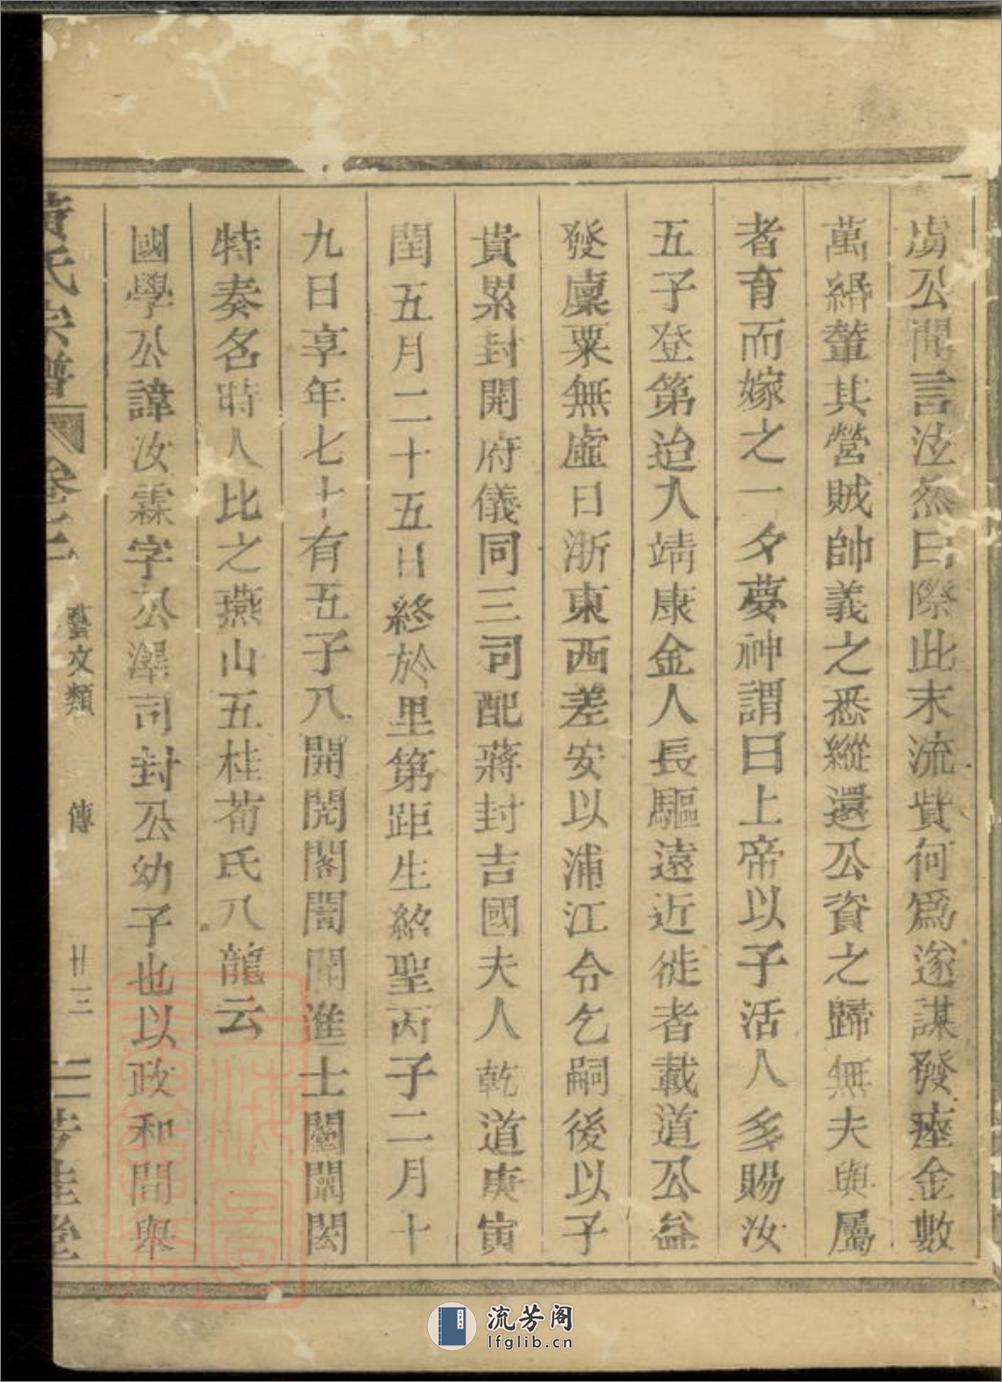 虜公聞言泣然曰際此末流貲何爲遂謀發瘞金數
萬緡輦其營賊帥義之悉縱還公資之歸無夫與屬
者育而嫁之一夕夢神謂曰上帝以子活人多賜汝
五子登第迨入靖康金人長驅遠近徙者載道公益
發廩粟無虛日浙東西差安以浦江令乞嗣後以子
貴累封開府儀同三司配蔣封吉國夫人乾道庚寅
閏五月二十五日終於里第距生紹聖丙子二月十
九日享年七十有五子八開閱閣闇聞進士闡闢閎
特奏名時人比之燕山五桂荀氏八龍云
國學公諱汝霖字公澤司封公幼子也以政和間與
黃氏宗譜 卷之 藝文類 傳 廿三 三芳桂堂
流芳阁
lfglib.cn